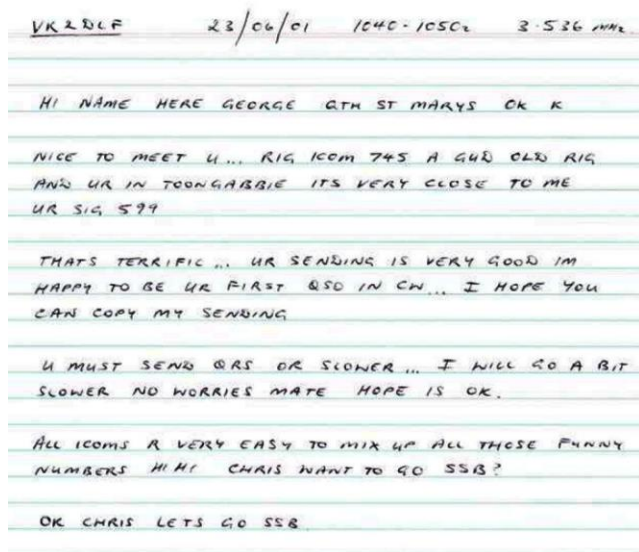 VK2DLF 23/06/01 1040-1050z 3.536 MHz
HI NAME HERE GEORGE QTH ST MARYS OK K
NICE TO MEET U... RIG ICOM 745 A GUD OLD RIG
AND UR IN TOONGABBIE ITS VERY CLOSE TO ME
UR SIG 599
THATS TERRIFIC... UR SENDING IS VERY GOOD IM
HAPPY TO BE UR FIRST QSO IN CW... I HOPE YOU
CAN COPY MY SENDING
U MUST SEND QRS OR SLOWER... I WILL GO A BIT
SLOWER NO WORRIES MATE HOPE IS OK.
ALL ICOMS R VERY EASY TO MIX UP ALL THOSE FUNNY
NUMBERS HI HI CHRIS WANT TO GO SSB?
OK CHRIS LETS GO SSB